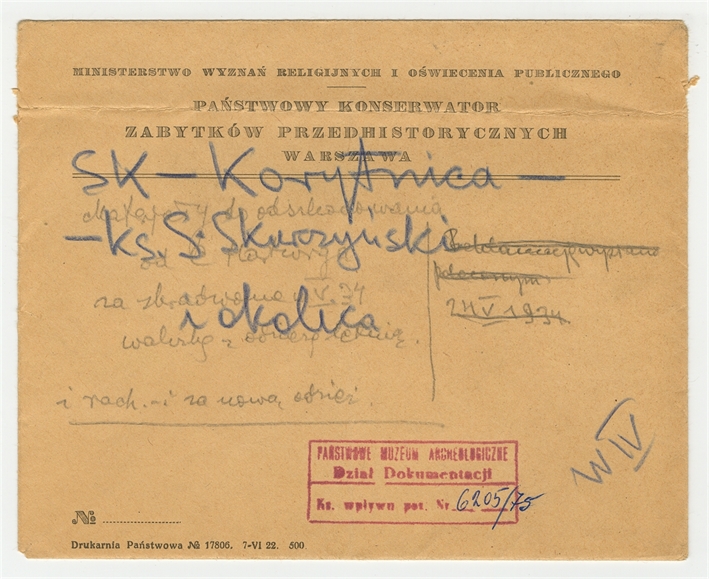 MINISTERSTWO WYZNAŃ RELIGIJNYCH I OŚWIECENIA PUBLICZNEGO
PAŃSTWOWY KONSERWATOR
ZABYTKÓW PRZEDHISTORYCZNYCH
WARSZAWA
SK – Korytnica –
do odszkodowania
– ks. S. Skurzyński
od
za V.34
i okolica
walizkę z
24 V 1934
i rach. – i za nową odzież.
W IV
PAŃSTWOWE MUZEUM ARCHEOLOGICZNE
Dział Dokumentacji
Ks. wpływu poz. Nr 6205/75
№
Drukarnia Państwowa № 17806. 7-VI 22. 500